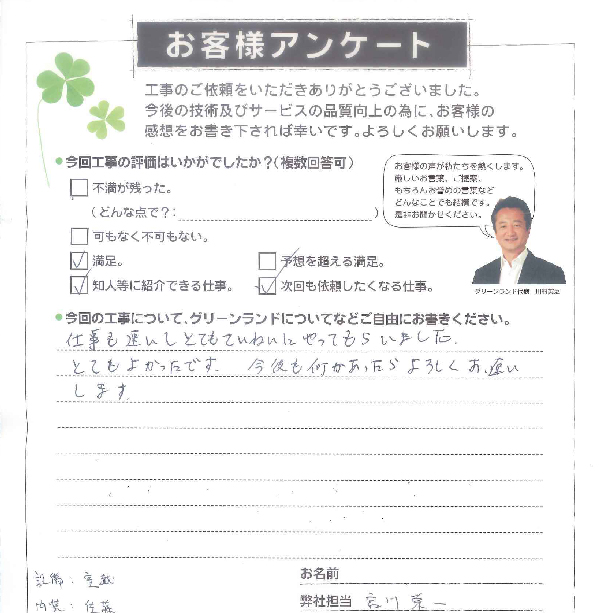 お客様アンケート
工事のご依頼をいただきありがとうございました。
今後の技術及びサービスの品質向上の為に、お客様の
感想をお書き下されば幸いです。よろしくお願いします。
●今回工事の評価はいかがでしたか?(複数回答可)
不満が残った。
(どんな点で?: )
可もなく不可もない。
満足。
予想を超える満足。
知人等に紹介できる仕事。
次回も依頼したくなる仕事。
お客様の声が私たちを熱くします。
厳しいお言葉、ご提案、
もちろんお誉めの言葉など
どんなことでも結構です。
是非お聞かせください。
グリーンランド代表
●今回の工事について、グリーンランドについてなどご自由にお書きください。
仕事も速いしとてもていねいにやってもらいました。
とてもよかったです。 今後も何かあったらよろしくお願い
します。
お名前
弊社担当
設備:
内装: 佐藤